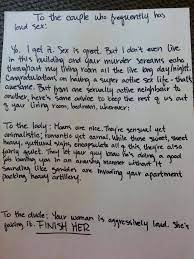 To the couple who frequently has
loud sex:
Yo, I get it. Sex is great. But I don't even live
in this building and your murder screams echo
throughout my living room all the live long day/night.
Congratulations on having a super active sex life - that's
awesome. But from one sexually active neighbor to
another, here's some advice to keep the rest of us out
of your living room, bedroom, wherever:
To the lady: Moans are nice. They're sensual yet
animalistic, romantic yet carnal. While those sweet, sweet
heavy, guttural sighs encapsulate all of this, they're also
fairly quiet. They let your guy know he's doing a good
job banging you in an arousing manner without it
sounding like grandes are invading your apartment
packing heavy artillery.
To the dude: Your woman is aggressively loud. She's
faking it. FINISH HER